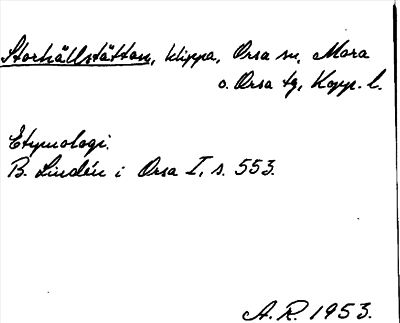 Storhällstättan, klippa, Orsa sn, Mora
o. Orsa tg, Kopp. l.
Etymologi.
B. Lindén i Orsa I, s. 553.
A.R. 1953.